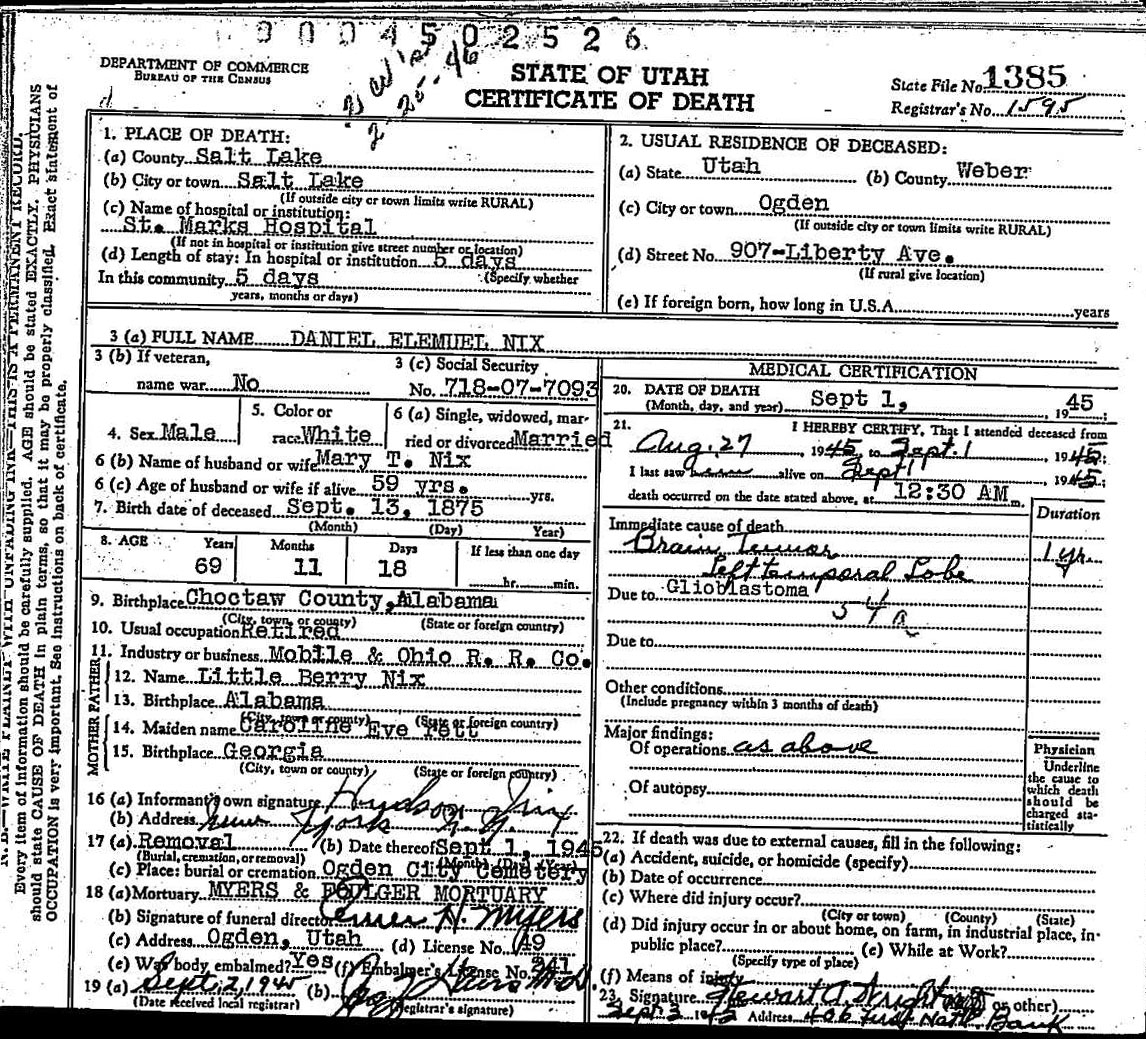 0004502526
2-26-46
DEPARTMENT OF COMMERCE
BUREAU OF THE CENSUS
STATE OF UTAH
CERTIFICATE OF DEATH
State File No. 1385
Registrar's No. 1595
Every item of information should be carefully supplied. AGE should be stated EXACTLY. PHYSICIANS
should state CAUSE OF DEATH in plain terms, so that it may be properly classified. Exact statement of
OCCUPATION is very important. See instructions on back of certificate.
1. PLACE OF DEATH:
(a) County Salt Lake
(b) City or town Salt Lake
(If outside city or town limits write RURAL)
(c) Name of hospital or institution:
St. Marks Hospital
(If not in hospital or institution give street number or location)
(d) Length of stay: In hospital or institution 5 days
(Specify whether
In this community 5 days
years, months or days)
2. USUAL RESIDENCE OF DECEASED:
(a) State Utah (b) County Weber
(c) City or town Ogden
(If outside city or town limits write RURAL)
(d) Street No. 907-Liberty Ave.
(If rural give location)
(e) If foreign born, how long in U.S.A. years
3 (a) FULL NAME DANIEL ELEMUEL NIX
3 (b) If veteran,
name war No
3 (c) Social Security
No. 718-07-7093
4. Sex Male
5. Color or
race White
6 (a) Single, widowed, mar-
ried or divorced Married
6 (b) Name of husband or wife Mary T. Nix
6 (c) Age of husband or wife if alive 59 yrs. yrs.
7. Birth date of deceased Sept. 13, 1875
(Month) (Day) Year)
8. AGE Years Months Days If less than one day
69 11 18 hr. min.
9. Birthplace Choctaw County, Alabama
(City, town, or county) (State or foreign country)
10. Usual occupation Retired
11. Industry or business Mobile & Ohio R. R. Co.
FATHER
12. Name Little Berry Nix
13. Birthplace Alabama
(City, town or county) (State or foreign country)
MOTHER
14. Maiden name Caroline Eve rett
15. Birthplace Georgia
(City, town or county) (State or foreign country)
16 (a) Informant's own signature Hudson Nix
(b) Address New York N.Y.
17 (a) Removal (b) Date thereof Sept 1, 1945
(Burial, cremation, or removal) (Month) (Day) (Year)
(c) Place: burial or cremation Ogden City Cemetery
18 (a) Mortuary MYERS & FOULGER MORTUARY
(b) Signature of funeral director Elmer H. Myers
(c) Address Ogden, Utah (d) License No. 49
(e) Was body embalmed? Yes (f) Embalmer's License No. 241
19 (a) Sept. 2, 1945 (b)
(Date received local registrar) Registrar's signature)
MEDICAL CERTIFICATION
20. DATE OF DEATH
(Month, day, and year) Sept 1, , 19 45 ;
21. I HEREBY CERTIFY, That I attended deceased from
Aug. 27 , 1945, to Sept. 1 , 1945;
I last saw him alive on Sept 1 , 1945;
death occurred on the date stated above, at 12:30 AM m.
Duration
Immediate cause of death
Brain Tumor 1 yr.
Left temporal Lobe
Due to Glioblastoma
54a
Due to
Other conditions
(Include pregnancy within 3 months of death)
Major findings:
Of operations as above
Of autopsy
Physician
Underline
the cause to
which death
should be
charged sta-
tistically
22. If death was due to external causes, fill in the following:
(a) Accident, suicide, or homicide (specify)
(b) Date of occurrence
(c) Where did injury occur?
(City or town) (County) (State)
(d) Did injury occur in or about home, on farm, in industrial place, in-
public place? (e) While at Work?
(Specify type of place)
(f) Means of injury
23. Signature Stewart A. Wright or other)
Sept. 3 1945 Address 406 First Natl. Bank